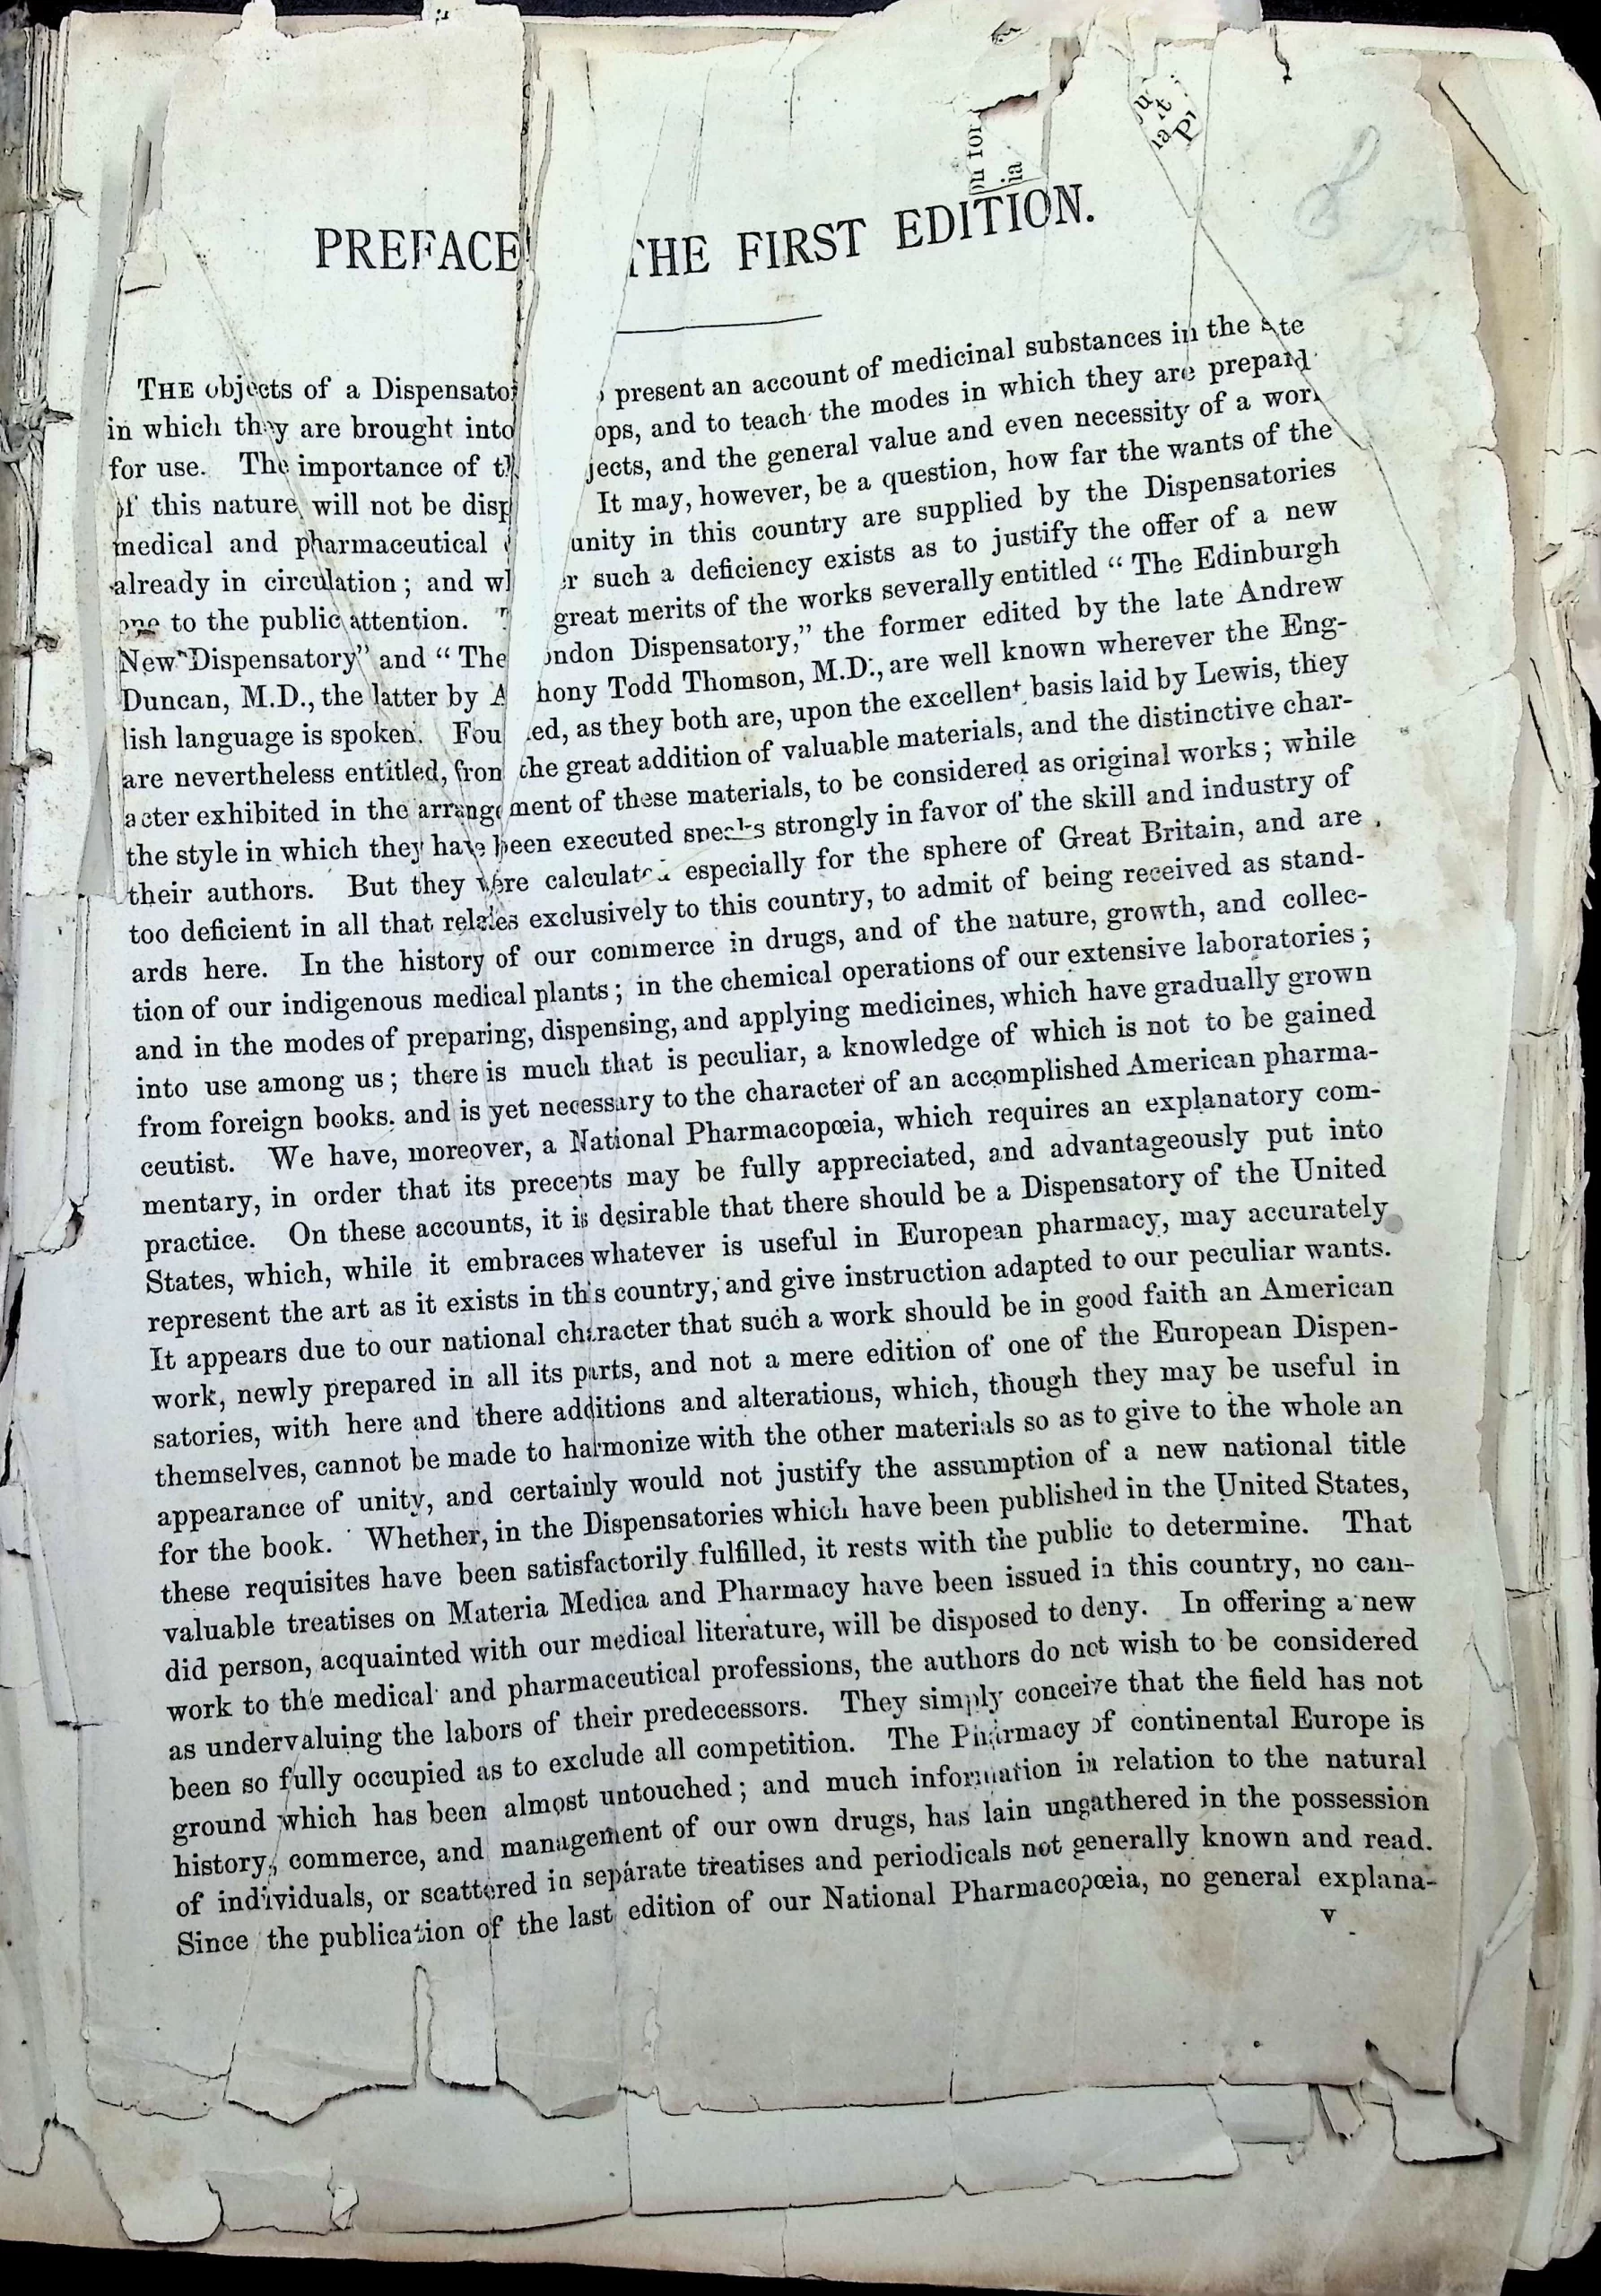 PREFACE THE FIRST EDITION.
THE objects of a present an account of medicinal substances in the
in which they are brought into and to teach the modes in which they are
for use. The importance of and the general value and even necessity of a
of this nature will not be It may, however, be a question, how far the wants of the
medical and pharmaceutical in this country are supplied by the Dispensatories
already in circulation; and such a deficiency exists as to justify the offer of a new
one to the public attention. great merits of the works severally entitled “The Edinburgh
New Dispensatory” and “The Dispensatory,” the former edited by the late Andrew
Duncan, M.D., the latter by Todd Thomson, M.D., are well known wherever the Eng-
lish language is spoken. as they both are, upon the excellent basis laid by Lewis, they
are nevertheless entitled, from the great addition of valuable materials, and the distinctive char-
acter exhibited in the arrangement of these materials, to be considered as original works; while
the style in which they have been executed speaks strongly in favor of the skill and industry of
their authors. But they were calculated especially for the sphere of Great Britain, and are
too deficient in all that relates exclusively to this country, to admit of being received as stand-
ards here. In the history of our commerce in drugs, and of the nature, growth, and collec-
tion of our indigenous medical plants; in the chemical operations of our extensive laboratories;
and in the modes of preparing, dispensing, and applying medicines, which have gradually grown
into use among us; there is much that is peculiar, a knowledge of which is not to be gained
from foreign books, and is yet necessary to the character of an accomplished American pharma-
ceutist. We have, moreover, a National Pharmacopœia, which requires an explanatory com-
mentary, in order that its precepts may be fully appreciated, and advantageously put into
practice. On these accounts, it is desirable that there should be a Dispensatory of the United
States, which, while it embraces whatever is useful in European pharmacy, may accurately
represent the art as it exists in this country, and give instruction adapted to our peculiar wants.
It appears due to our national character that such a work should be in good faith an American
work, newly prepared in all its parts, and not a mere edition of one of the European Dispen-
satories, with here and there additions and alterations, which, though they may be useful in
themselves, cannot be made to harmonize with the other materials so as to give to the whole an
appearance of unity, and certainly would not justify the assumption of a new national title
for the book. Whether, in the Dispensatories which have been published in the United States,
these requisites have been satisfactorily fulfilled, it rests with the public to determine. That
valuable treatises on Materia Medica and Pharmacy have been issued in this country, no can-
did person, acquainted with our medical literature, will be disposed to deny. In offering a new
work to the medical and pharmaceutical professions, the authors do not wish to be considered
as undervaluing the labors of their predecessors. They simply conceive that the field has not
been so fully occupied as to exclude all competition. The Pharmacy of continental Europe is
ground which has been almost untouched; and much information in relation to the natural
history, commerce, and management of our own drugs, has lain ungathered in the possession
of individuals, or scattered in separate treatises and periodicals not generally known and read.
Since the publication of the last edition of our National Pharmacopœia, no general explana-
v